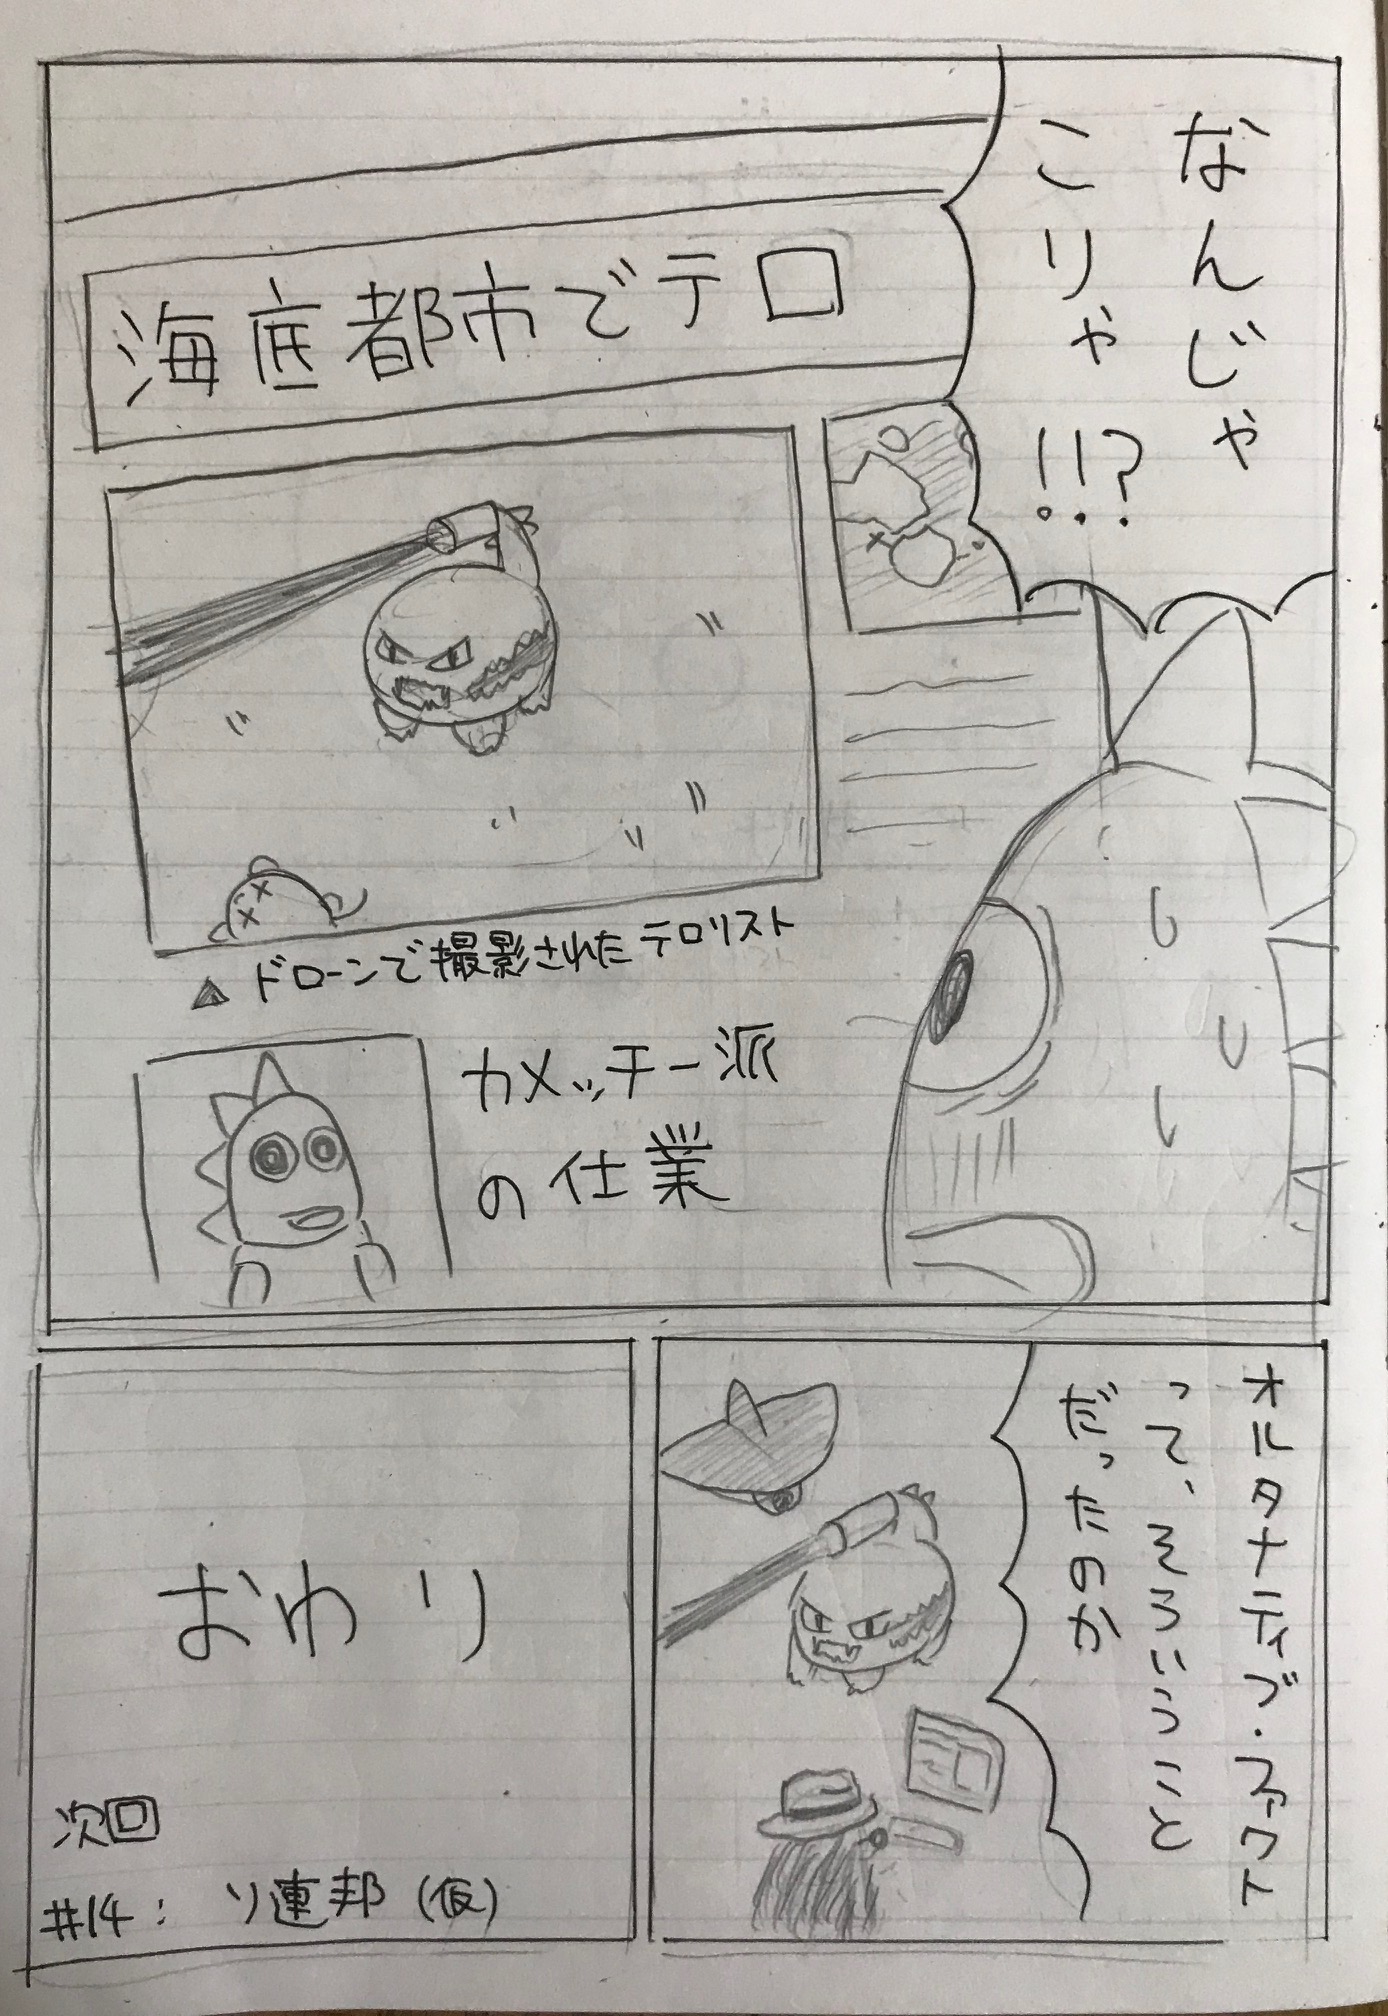 なんじゃ
こりゃ!!?
海底都市でテロ
▲ドローンで撮影されたテロリスト
カメッチー派
の仕業
オルタナティブ・ファクト
って、そういうこと
だったのか
おわり
次回
#14: ソ連邦(仮)